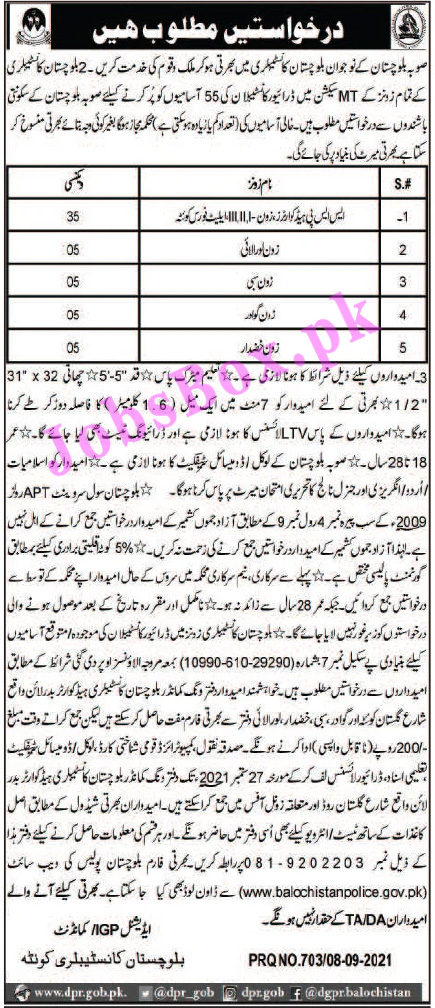 درخواستیں مطلوب ہیں
صوبہ بلوچستان کے نوجوان بلوچستان کانسٹیبلری میں بھرتی ہو کر ملک و قوم کی خدمت کریں۔ 2 بلوچستان کانسٹیبلری
کے تمام زونز کے MT سیکشن میں ڈرائیور کانسٹیبلان کی 55 آسامیوں کو پُر کرنے کیلئے صوبہ بلوچستان کے سکونتی
باشندوں سے درخواستیں مطلوب ہیں۔ خالی آسامیوں کی (تعداد کم یا زیادہ ہو سکتی ہے) محکمہ مجاز ہوگا بغیر کوئی وجہ بتائے بھرتی منسوخ کر
سکتا ہے بھرتی میرٹ کی بنیاد پر کی جائے گی۔
S.# نام زونز ویکنسی
1- ایس ایس پی ہیڈ کوارٹرز، زون-III,II,I، ایلیٹ فورس کوئٹہ 35
2 زون لورالائی 05
3 زون سبی 05
4 زون گوادر 05
5 زون خضدار 05
3۔ امیدواروں کیلئے ذیل شرائط کا ہونا لازمی ہے۔ ☆ تعلیم میٹرک پاس ☆ قد "5-'5 ☆ چھاتی 32 x "31
1/2" ☆ بھرتی کے لئے امیدوار کو 7 منٹ میں ایک میل (1.6 کلومیٹر) کا فاصلہ دوڑ کر طے کرنا
ہوگا۔ ☆ امیدواروں کے پاس LTV لائسنس کا ہونا لازمی ہے اور ڈرائیونگ ٹیسٹ بھی لیا جائے گا۔ ☆ عمر
18 تا 28 سال۔ ☆ صوبہ بلوچستان کے لوکل/ڈومیسائل سرٹیفکیٹ کا ہونا لازمی ہے۔ ☆ امیدوار کو اسلامیات
/اردو/انگریزی اور جنرل نالج کا تحریری امتحان میرٹ پر پاس کرنا ہوگا۔ ☆ بلوچستان سول سرونٹ APT رولز
2009ء کے سب پیرہ نمبر 4 رول نمبر 9 کے مطابق آزاد جموں کشمیر کے امیدوار درخواستیں جمع کرانے کے اہل نہیں
ہیں۔ لہٰذا آزاد جموں کشمیر کے امیدوار درخواستیں جمع کرنے کی زحمت نہ کریں۔ ☆ 5% کوٹہ اقلیتی برادری کیلئے بمطابق
گورنمنٹ پالیسی مختص ہے۔ ☆ پہلے سے سرکاری، نیم سرکاری محکمہ میں سروس کے حامل امیدوار اپنے محکمہ کے توسط سے
درخواستیں جمع کروائیں۔ جبکہ عمر 28 سال سے زائد نہ ہو۔ ☆ نامکمل اور مقررہ تاریخ کے بعد موصول ہونے والی
درخواستوں کو زیر غور نہیں لایا جائے گا۔ ☆ بلوچستان کانسٹیبلری زونز میں ڈرائیور کانسٹیبلان کی موجودہ/متوقع آسامیوں
کیلئے بنیادی پے سکیل نمبر 7 بشمارہ (29290-610-10990) بمعہ مروجہ الاؤنسز اوپر دی گئی شرائط کے مطابق
امیدواروں سے درخواستیں مطلوب ہیں۔ خواہشمند امیدوار دفتر ونگ کمانڈر بلوچستان کانسٹیبلری ہیڈ کوارٹر بدر لائن واقع
شارع گلستان کوئٹہ اور گوادر، سبی، خضدار، لورالائی دفتر سے بھرتی فارم مفت حاصل کر سکتے ہیں لیکن جمع کراتے وقت مبلغ
200/- روپے (ناقابل واپسی) ادا کرنے ہونگے۔ مصدقہ نقول، کمپیوٹرائزڈ قومی شناختی کارڈ، لوکل/ڈومیسائل سرٹیفکیٹ
تعلیمی اسناد، ڈرائیور لائسنس لف کر کے مورخہ 27 ستمبر 2021 تک دفتر ونگ کمانڈر بلوچستان کانسٹیبلری ہیڈ کوارٹر بدر
لائن واقع شارع گلستان روڈ اور متعلقہ زونل آفس میں جمع کرا سکتے ہیں۔ امیدواران بھرتی شیڈول کے مطابق اصل
کاغذات کے ساتھ ٹیسٹ/انٹرویو کیلئے بھی اُسی دفتر میں حاضر ہونگے۔ اور ہر قسم کی معلومات حاصل کرنے کیلئے دفتر ہذا
کے ذیل نمبر 081-9202203 پر رابطہ کریں۔ بھرتی فارم بلوچستان پولیس کی ویب سائٹ
(www.balochistanpolice.gov.pk) سے ڈاؤن لوڈ بھی کیا جا سکتا ہے۔ بھرتی کیلئے آنے والے
امیدواران TA/DA کے حقدار نہیں ہونگے۔
ایڈیشنل IGP/کمانڈنٹ
بلوچستان کانسٹیبلری کوئٹہ
PRQ NO.703/08-09-2021
www.dpr.gob.pk. @dpr_gob dpr.gob @dgpr.balochistan
JobsBox.pk